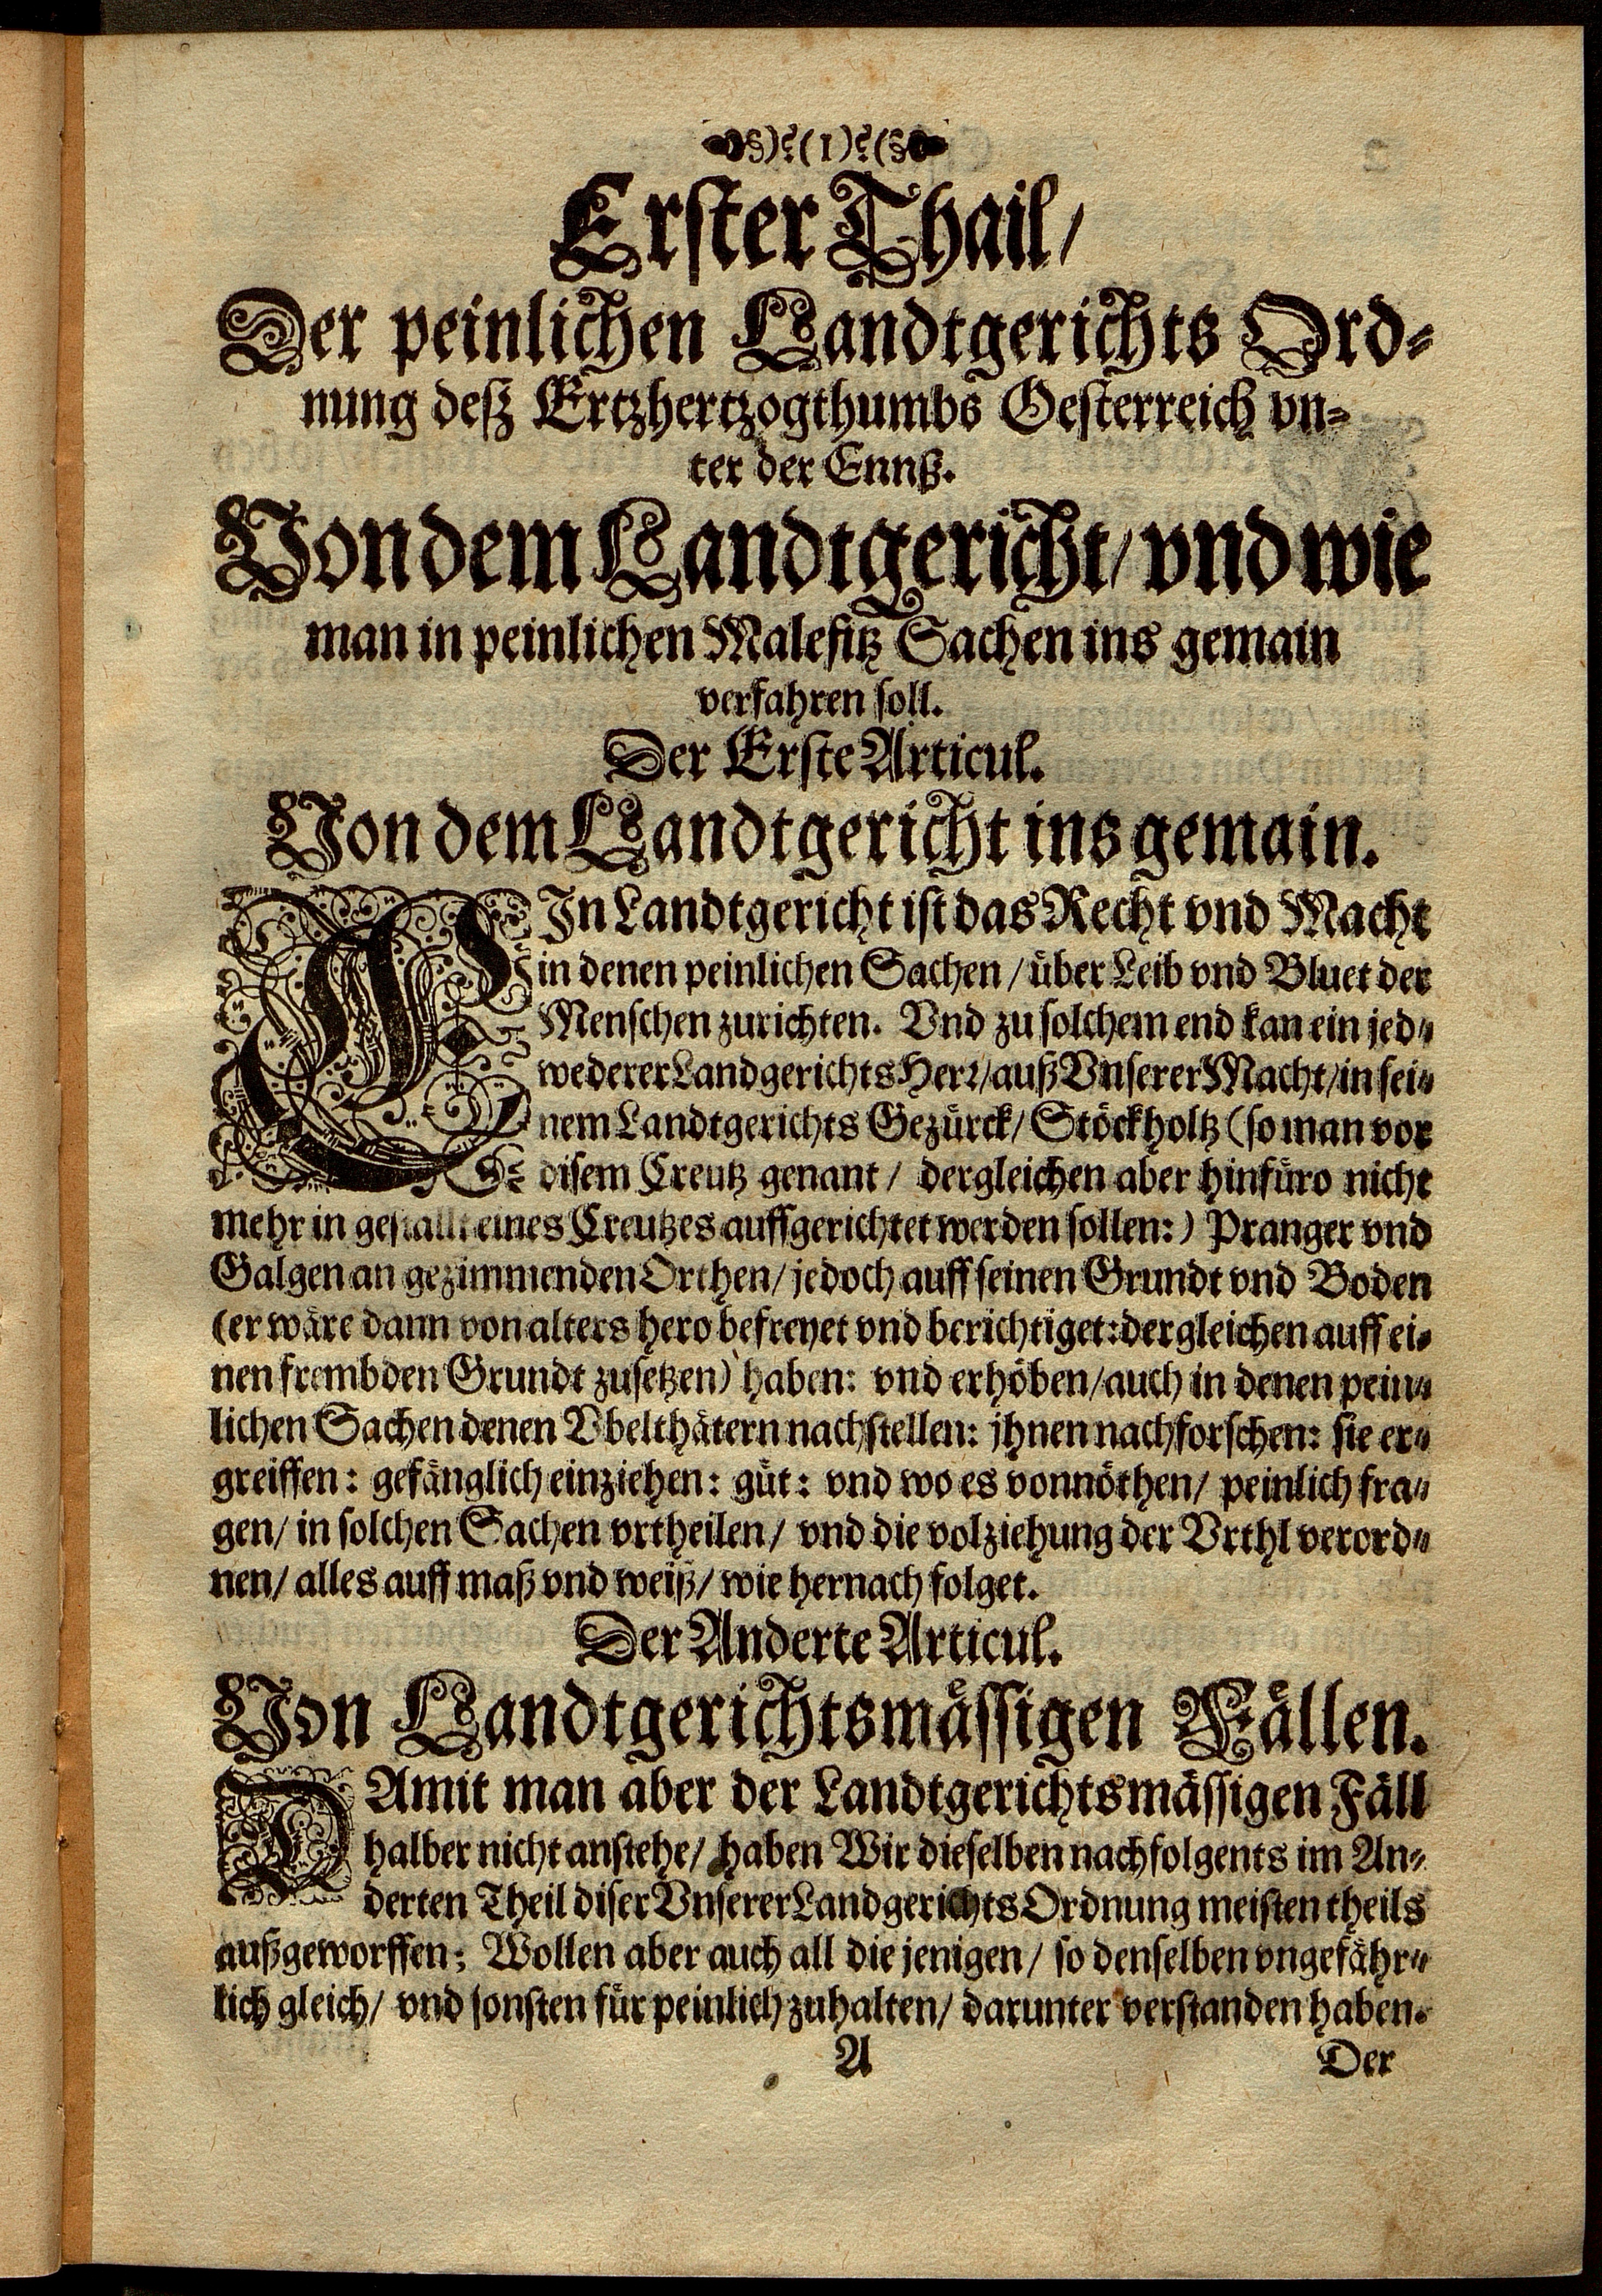 (1)
Erster Thail/
Der peinlichen Landtgerichts Ord-
nung deß Ertzhertzogthumbs Oesterreich vn-
ter der Ennß.
Von dem Landtgericht/ vnd wie
man in peinlichen Malefitz Sachen ins gemain
verfahren soll.
Der Erste Articul.
Von dem Landtgericht ins gemain.
EIn Landtgericht ist das Recht vnd Macht
in denen peinlichen Sachen / über Leib vnd Bluet der
Menschen zurichten. Vnd zu solchem end kan ein jed-
wederer Landgerichts Herr/ auß Vnserer Macht/ in sei-
nem Landtgerichts Gezürck/ Stöckholtz (so man vor
disem Creutz genant / dergleichen aber hinfüro nicht
mehr in gestallt eines Creutzes auffgerichtet werden sollen:) Pranger vnd
Galgen an gezimmenden Orthen/ jedoch auff seinen Grundt vnd Boden
(er wäre dann von alters hero befreyet vnd berichtiget: dergleichen auff ei-
nen frembden Grundt zusetzen) haben: vnd erhöben/ auch in denen pein-
lichen Sachen denen Vbelthätern nachstellen: jhnen nachforschen: sie er-
greiffen: gefänglich einziehen: güt: vnd wo es vonnöthen/ peinlich fra-
gen/ in solchen Sachen vrtheilen/ vnd die volziehung der Vrthl verord-
nen/ alles auff maß vnd weiß/ wie hernach folget.
Der Anderte Articul.
Von Landtgerichtsmässigen Fällen.
DAmit man aber der Landtgerichtsmässigen Fäll
halber nicht anstehe/ haben Wir dieselben nachfolgents im An-
derten Theil diser Vnserer Landgerichts Ordnung meisten theils
außgeworffen; Wollen aber auch all die jenigen/ so denselben vngefähr-
lich gleich/ vnd sonsten für peinlich zuhalten/ darunter verstanden haben.
A Der